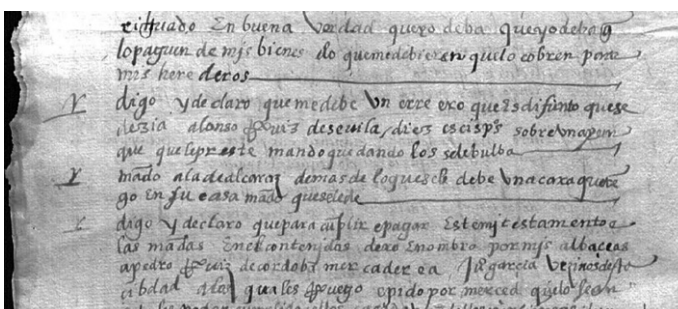 en buena verdad quero deba que yo deba q
lo paguen de mis bienes elo que me debieren que lo cobren para
mis herederos
digo y declaro que me debe un erre ero que es difunto que se
dezia alonso Ruiz de sevila diez e seis ps sobre un
que que le preste mando que dando los se le bulba
mãdo a la de alcaraz demas de lo que se le debe una caxa que te
go en su casa mãdo que se le de
digo y declaro que para cũplir e pagar este mi testamento e
las mãdas en el contenydas dexo e nombro por mis albaceas
a pedro Ruiz de cordoba mercader e a garcia vezinos desta
cibdad a los quales Ruego e pido por merced que lo sean